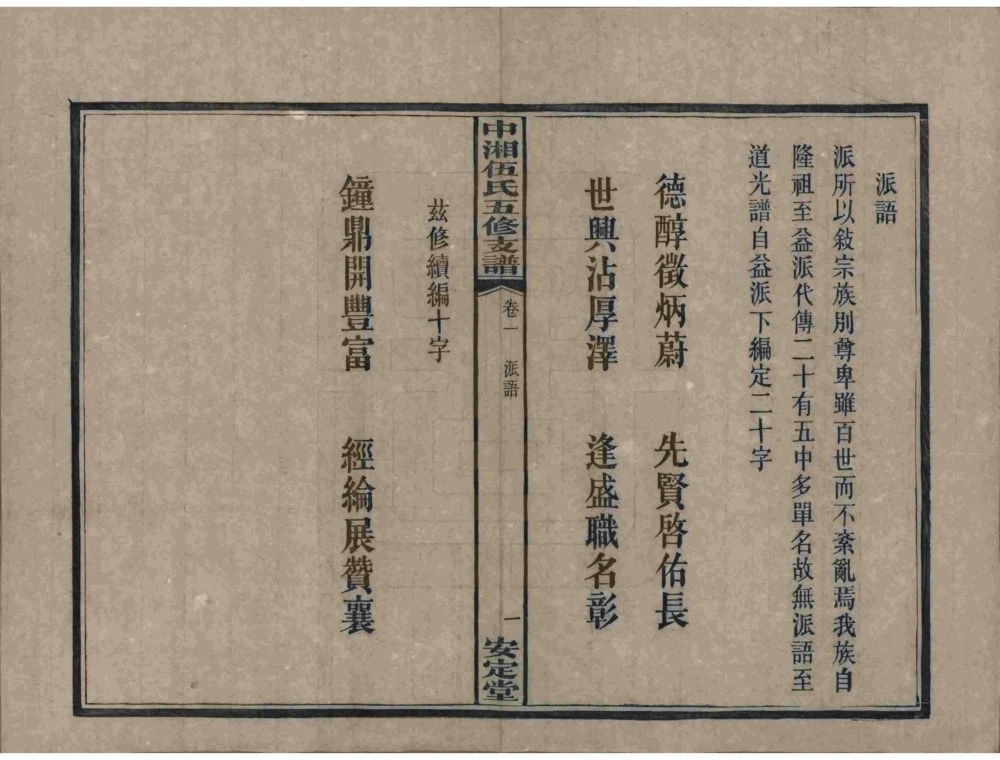 派語
派所以敍宗族別尊卑雖百世而不紊亂焉我族自
隆祖至益派代傳二十有五中多單名故無派語至
道光譜自益派下編定二十字
德醇徵炳蔚　先賢啓佑長
世興沾厚澤　逢盛職名彰
中湘伍氏五修支譜
卷一　派語
一
安定堂
茲修續編十字
鐘鼎開豐富　經綸展贊襄